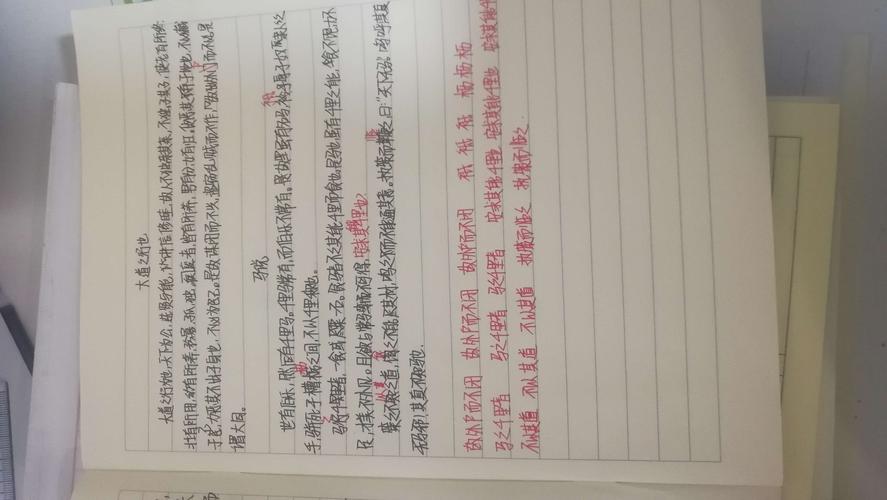 大道之行也
大道之行也,天下为公,选贤与能,讲信修睦,故人不独亲其亲,不独子其子,使老有所终,
壮有所用,幼有所长,矜、寡、孤、独、废疾者,皆有所养,男有分,女有归。货恶其弃于地也,不必藏
于己;力恶其不出于身也,不必为己。是故谋闭而不兴,盗窃乱贼而不作,故外户而不闭,是
谓大同。
马说
世有伯乐,然后有千里马。千里马常有,而伯乐不常有。故虽有名马,祇辱于奴隶人之
手,骈死于槽枥之间,不以千里称也。
马之千里者,一食或尽粟一石。食马者不知其能千里而食也。是马也,虽有千里之能,食不饱,力不
足,才美不外见。且欲与常马等不可得,安求其能千里也?
策之不以其道,食之不能尽其材,鸣之而不能通其意。执策而临之,曰:“天下无马!”呜呼!其真
无马邪?其真不知马也。
故外户而不闭 故外户而不闭 故外户而不闭 祇 祇 祇 枥 枥 枥
马之千里者 马之千里者 马之千里者 安求其能千里也 安求其能千里也 安求其能千里也
不以其道 不以其道 不以其道 执策而临之 执策而临之